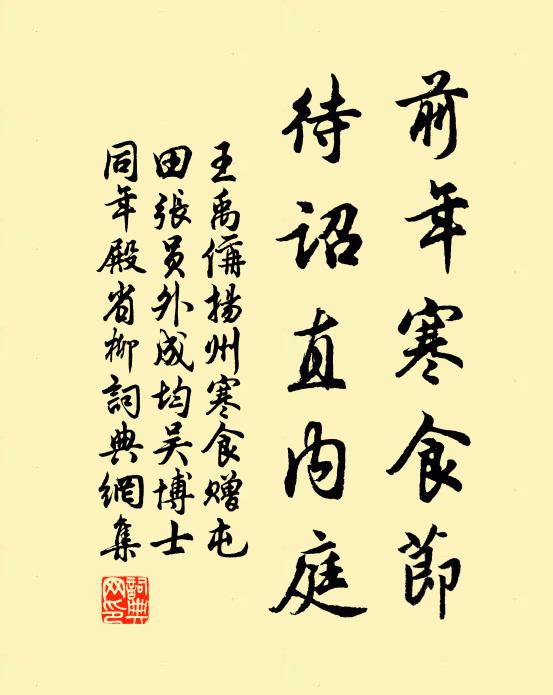 前年寒食節
待詔直内庭
王禹偁揚州寒食贈屯
田張員外成均吳博士
同年殿省柳詞典網集
詞典网印